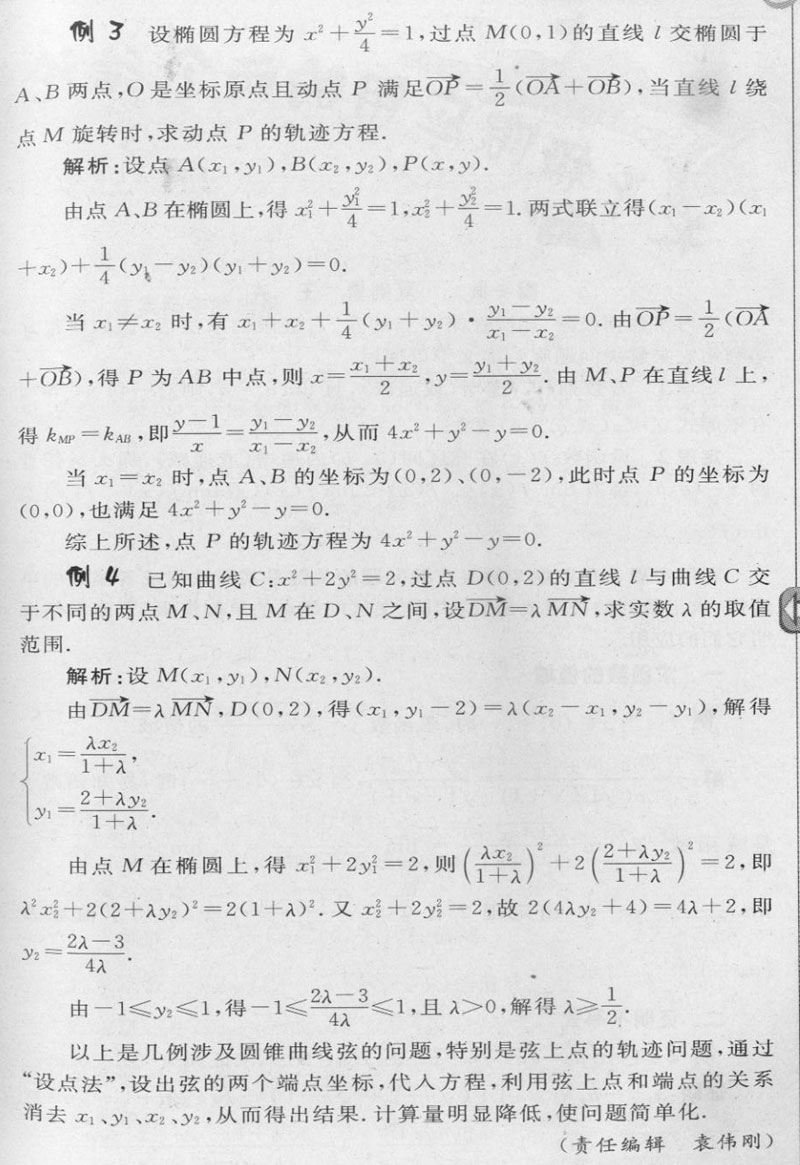 例 3 设椭圆方程为 x²+y²/4=1,过点 M(0,1)的直线 l 交椭圆于
A、B 两点,O 是坐标原点且动点 P 满足OP→=1/2(OA→+OB→),当直线 l 绕
点 M 旋转时,求动点 P 的轨迹方程.
解析:设点 A(x₁,y₁),B(x₂,y₂),P(x,y).
由点 A、B 在椭圆上,得 x₁²+y₁²/4=1,x₂²+y₂²/4=1. 两式联立得(x₁-x₂)(x₁
+x₂)+1/4(y₁-y₂)(y₁+y₂)=0.
当 x₁≠x₂ 时,有 x₁+x₂+1/4(y₁+y₂)·(y₁-y₂)/(x₁-x₂)=0. 由OP→=1/2(OA→
+OB→),得 P 为 AB 中点,则 x=(x₁+x₂)/2,y=(y₁+y₂)/2. 由 M、P 在直线 l 上,
得 k_MP=k_AB,即(y-1)/x=(y₁-y₂)/(x₁-x₂),从而 4x²+y²-y=0.
当 x₁=x₂ 时,点 A、B 的坐标为(0,2)、(0,-2),此时点 P 的坐标为
(0,0),也满足 4x²+y²-y=0.
综上所述,点 P 的轨迹方程为 4x²+y²-y=0.
例 4 已知曲线 C:x²+2y²=2,过点 D(0,2)的直线 l 与曲线 C 交
于不同的两点 M、N,且 M 在 D、N 之间,设DM→=λMN→,求实数 λ 的取值
范围.
解析:设 M(x₁,y₁),N(x₂,y₂).
由DM→=λMN→,D(0,2),得(x₁,y₁-2)=λ(x₂-x₁,y₂-y₁),解得
{x₁=λx₂/(1+λ),
y₁=(2+λy₂)/(1+λ).
由点 M 在椭圆上,得 x₁²+2y₁²=2,则(λx₂/(1+λ))²+2((2+λy₂)/(1+λ))²=2,即
λ²x₂²+2(2+λy₂)²=2(1+λ)². 又 x₂²+2y₂²=2,故 2(4λy₂+4)=4λ+2,即
y₂=(2λ-3)/4λ.
由-1≤y₂≤1,得-1≤(2λ-3)/4λ≤1,且 λ>0,解得 λ≥1/2.
以上是几例涉及圆锥曲线弦的问题,特别是弦上点的轨迹问题,通过
“设点法”,设出弦的两个端点坐标,代入方程,利用弦上点和端点的关系
消去 x₁、y₁、x₂、y₂,从而得出结果. 计算量明显降低,使问题简单化.
(责任编辑 袁伟刚)